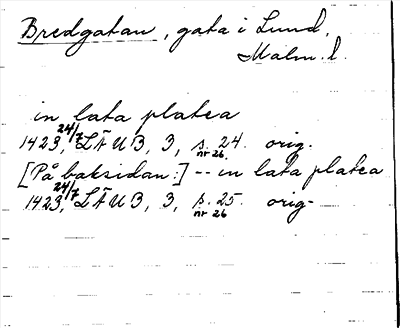 Bredgatan, gata i Lund,
Malm. l.
in lata platea
1423, 24/7 LÄUB, 3, s. 24. orig.
nr 26.
[På baksidan:] -- in lata platea
1423, 24/7 LÄUB, 3, s. 25. orig-
nr 26